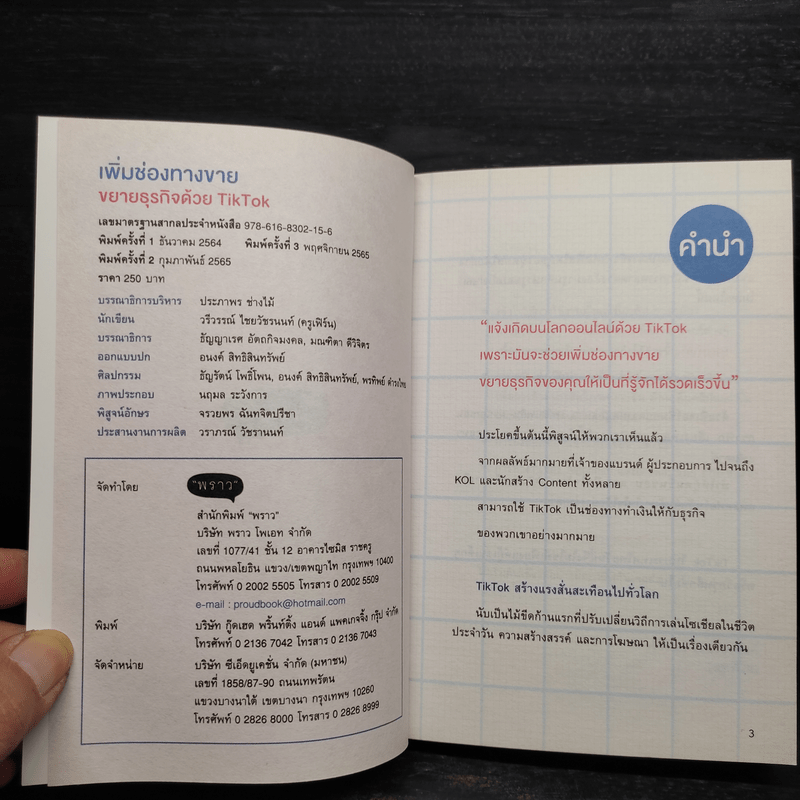 เพิ่มช่องทางขาย
ขยายธุรกิจด้วย TikTok
เลขมาตรฐานสากลประจำหนังสือ 978-616-8302-15-6
พิมพ์ครั้งที่ 1 ธันวาคม 2564 พิมพ์ครั้งที่ 3 พฤศจิกายน 2565
พิมพ์ครั้งที่ 2 กุมภาพันธ์ 2565
ราคา 250 บาท
บรรณาธิการบริหาร ประภาพร ช่างไม้
นักเขียน วรีวรรณ์ ไชยวัชรนนท์ (ครูเฟิร์น)
บรรณาธิการ ธัญญาเรศ อัตถกิจมงคล, มณฑิตา ดีวิจิตร
ออกแบบปก อนงค์ สิทธิสินทรัพย์
ศิลปกรรม ธัญรัตน์ โพธิ์โพน, อนงค์ สิทธิสินทรัพย์, พรทิพย์ ดำรงไทย
ภาพประกอบ นฤมล ระวังการ
พิสูจน์อักษร จรวยพร ฉันทจิตปรีชา
ประสานงานการผลิต วราภรณ์ วัชรานนท์
จัดทำโดย "พราว"
สำนักพิมพ์ "พราว"
บริษัท พราว โพเอท จำกัด
เลขที่ 1077/41 ชั้น 12 อาคารไซมิส ราชครู
ถนนพหลโยธิน แขวง/เขตพญาไท กรุงเทพฯ 10400
โทรศัพท์ 0 2002 5505 โทรสาร 0 2002 5509
e-mail : proudbook@hotmail.com
พิมพ์ บริษัท กู๊ดเฮด พริ้นท์ติ้ง แอนด์ แพคเกจจิ้ง กรุ๊ป จำกัด
โทรศัพท์ 0 2136 7042 โทรสาร 0 2136 7043
จัดจำหน่าย บริษัท ซีเอ็ดยูเคชั่น จำกัด (มหาชน)
เลขที่ 1858/87-90 ถนนเทพรัตน
แขวงบางนาใต้ เขตบางนา กรุงเทพฯ 10260
โทรศัพท์ 0 2826 8000 โทรสาร 0 2826 8999
คำนำ
"แจ้งเกิดบนโลกออนไลน์ด้วย TikTok
เพราะมันจะช่วยเพิ่มช่องทางขาย
ขยายธุรกิจของคุณให้เป็นที่รู้จักได้รวดเร็วขึ้น"
ประโยคขึ้นต้นนี้พิสูจน์ให้พวกเราเห็นแล้ว
จากผลลัพธ์มากมายที่เจ้าของแบรนด์ ผู้ประกอบการ ไปจนถึง
KOL และนักสร้าง Content ทั้งหลาย
สามารถใช้ TikTok เป็นช่องทางทำเงินให้กับธุรกิจ
ของพวกเขาอย่างมากมาย
TikTok สร้างแรงสั่นสะเทือนไปทั่วโลก
นับเป็นไม้ขีดก้านแรกที่ปรับเปลี่ยนวิถีการเล่นโซเชียลในชีวิต
ประจำวัน ความสร้างสรรค์ และการโฆษณา ให้เป็นเรื่องเดียวกัน
3